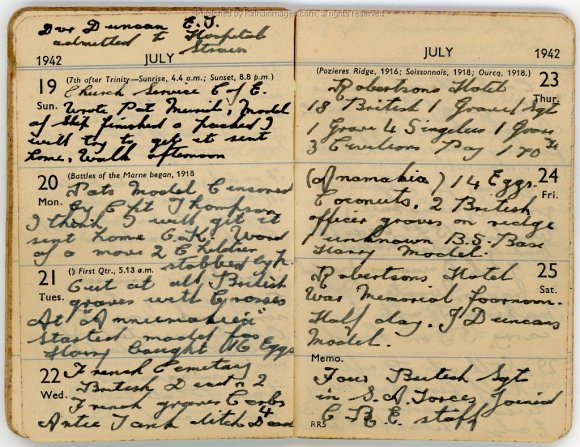 Published by Kilmainimages.com, all rights reserved
Dvr Duncan E.J.
admitted to Hospital
Strain
1942 JULY
19 (7th after Trinity—Sunrise, 4.4 a.m.; Sunset, 8.8 p.m.)
Church Service C of E.
Sun. Wrote Pat Munit, Model
of Ship finished & packed I
will try to get it sent
home, Walk afternoon
20 (Battles of the Marne began, 1918
Pats Model Censored
Mon. By Cpt Thompson
I think I will get it
sent home O.K. Word
of a move 2 E
stabbed
21 First Qtr., 5.13 a.m.
Out at all British
Tues. graves with crosses
At "
Started model for
Harry bought 46 Eggs
22 French Cemetary
British Dead 2
Wed. French graves
Antie Tank ditch 4 Dead
JULY 1942
(Pozieres Ridge, 1916; Soissonnais, 1918; Ourcq, 1918.) 23
Robertsons Hotel
Thur.
18 British 1 Grave 1 Sgt
1 Grave 4 Singeless 1 Grave
3 Civilions Pay 170
(Anamakia) 14 Eggs. 24
Coconuts, 2 British Fri.
officer graves on redge
1 unknown B.S. Base
Harry Model.
Robertsons Hotel 25
Was Memorial foornoon. Sat.
Half day. J Duncans
Model.
Memo.
Four British Sgt
in S.A. Forces Joined
C.R.E. staff
RRS